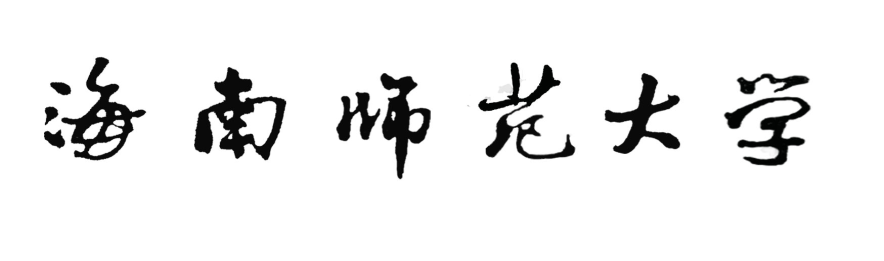 海南师范大学